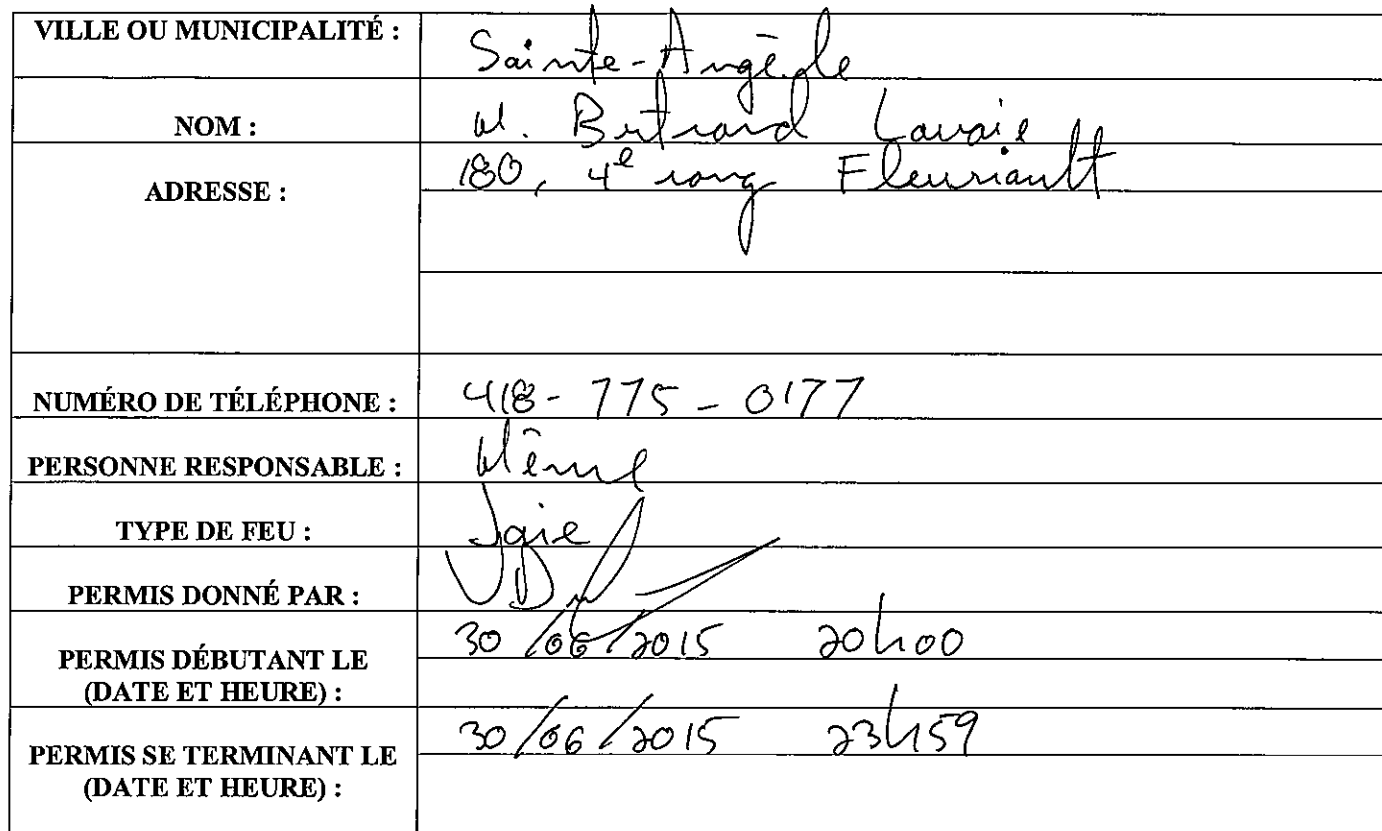 VILLE OU MUNICIPALITÉ : Sainte-Angèle
NOM : M. Bertrand Lavoie
ADRESSE : 180, 4e rang Fleuriault
NUMÉRO DE TÉLÉPHONE : 418-775-0177
PERSONNE RESPONSABLE : Même
TYPE DE FEU : Joie
PERMIS DONNÉ PAR :
PERMIS DÉBUTANT LE 30/06/2015 20h00
(DATE ET HEURE) :
PERMIS SE TERMINANT LE 30/06/2015 23h59
(DATE ET HEURE) :